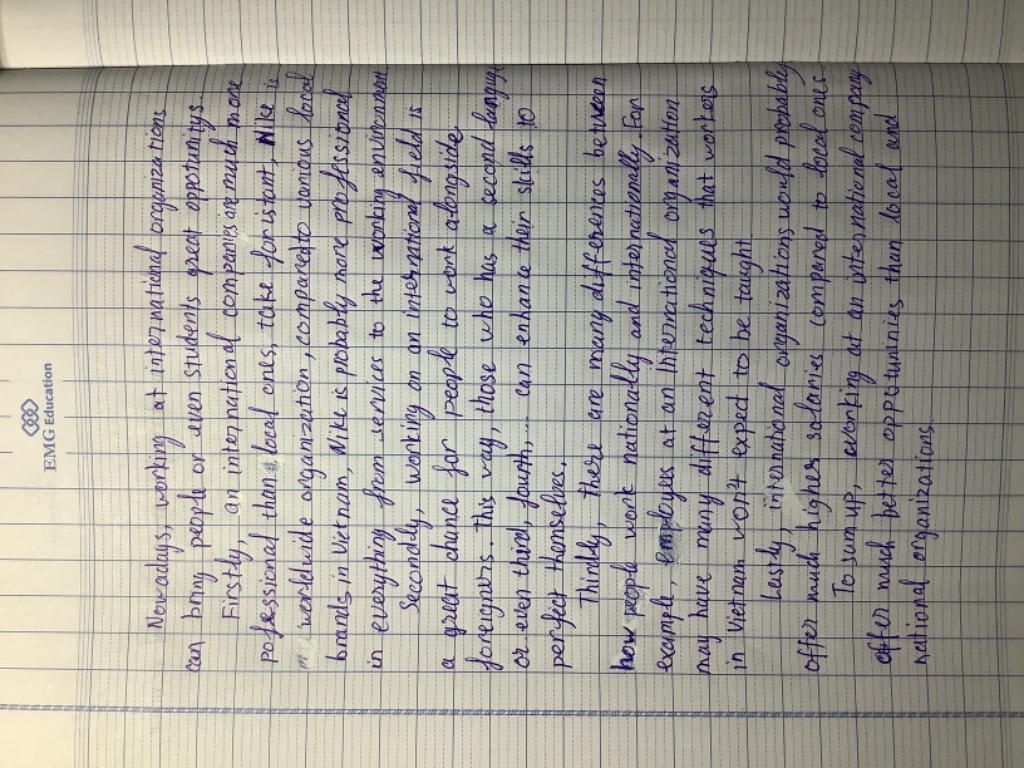 EMG Education
Nowadays, working at international organizations
can bring people or even students great oppotunitys.
Firstly, an international companies are much more
pofessional than local ones, take for istant, Nike is
worldwide organization, compared to various local
brands in Vietnam, Nike is probably more professional
in everything from services to the working environment.
Secondly, working on an international field is
a great chance for people to work alongside
foreigners. This way, those who has a second language
or even third, fourth,... can enhance their skills to
perfect themselves.
Thirdly, there are many differences between
how people work nationally and internationally. For
example, employes at an International organization
may have many different techniques that workers
in Vietnam won't expect to be taught.
Lastly, international organizations would probably
offer much higher salaries compared to local ones.
To sum up, working at an international company
offer much better opportunities than local and
national organizations.